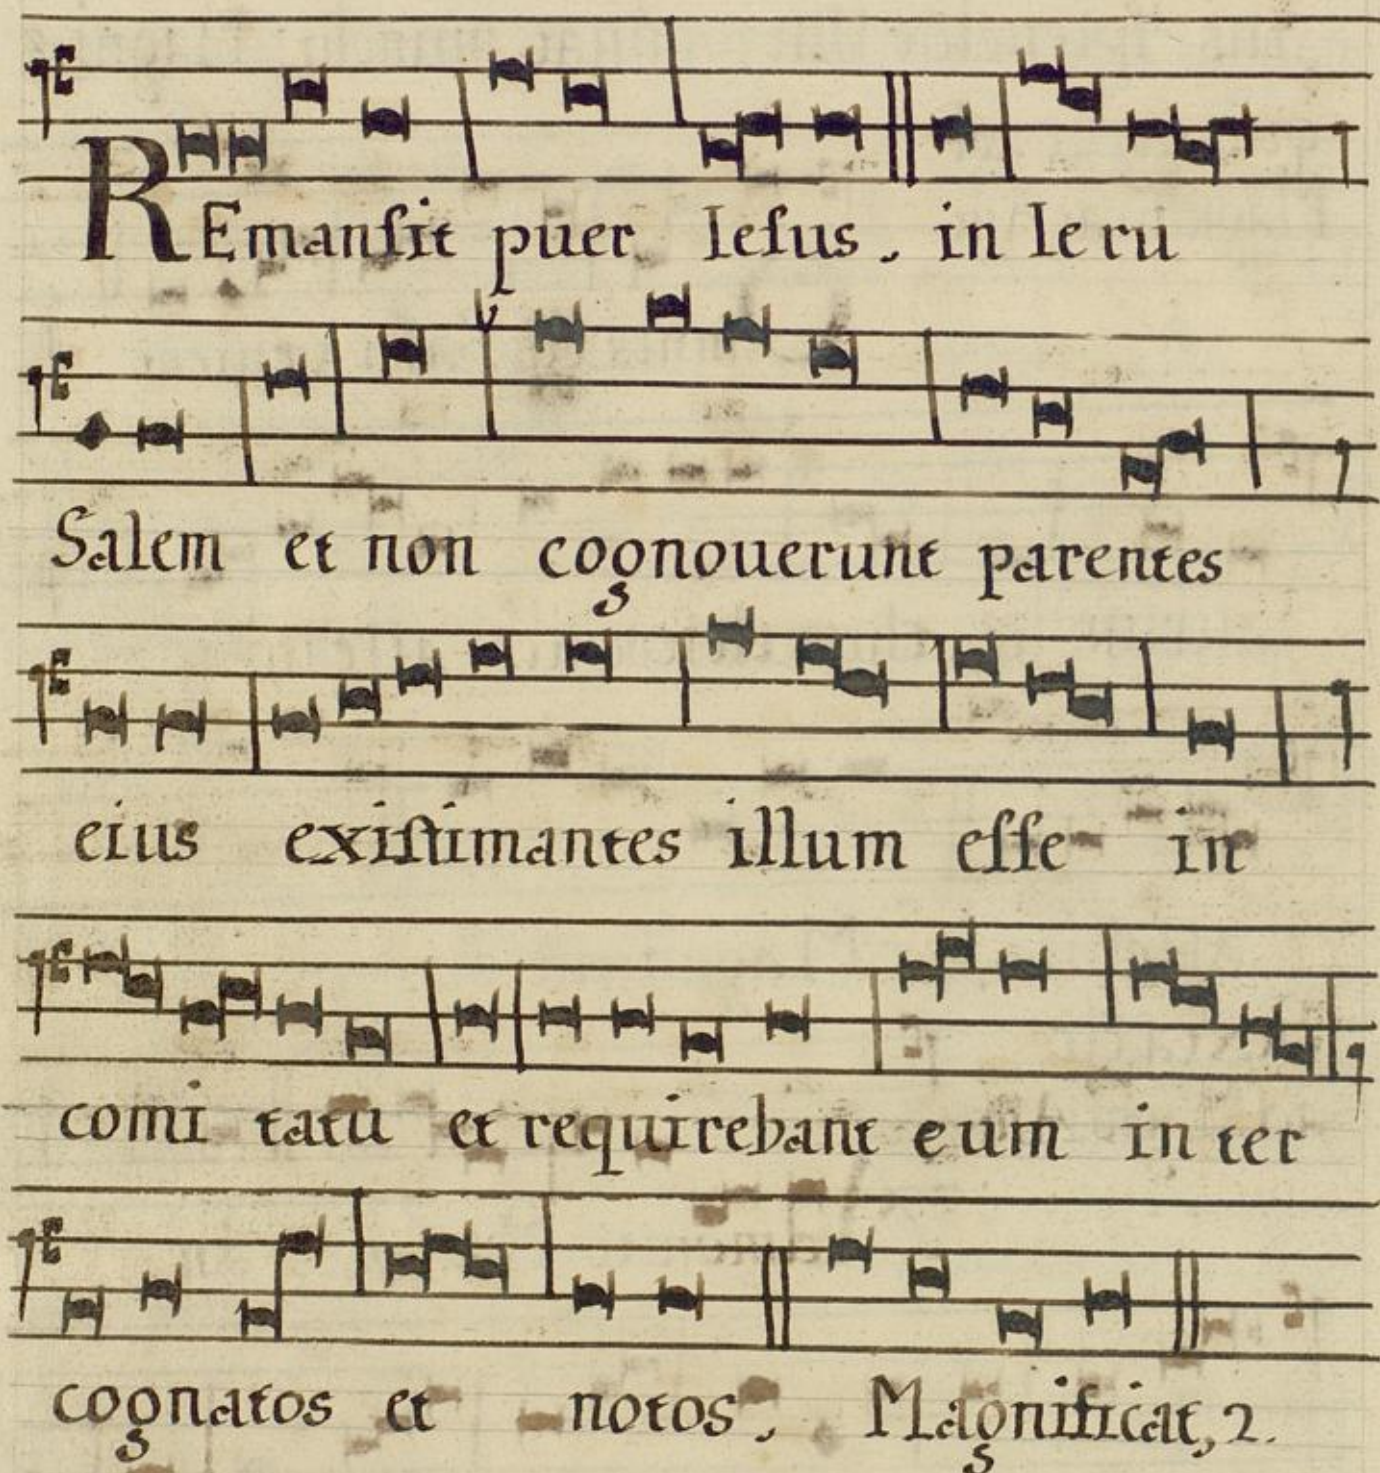 REmanſit puer Ieſus. in Ie ru
Salem et non cognouerunt parentes
eius exiſtimantes illum eſſe in
comi tatu et requirebant eum in ter
cognatos et notos. Magnificat, 2.